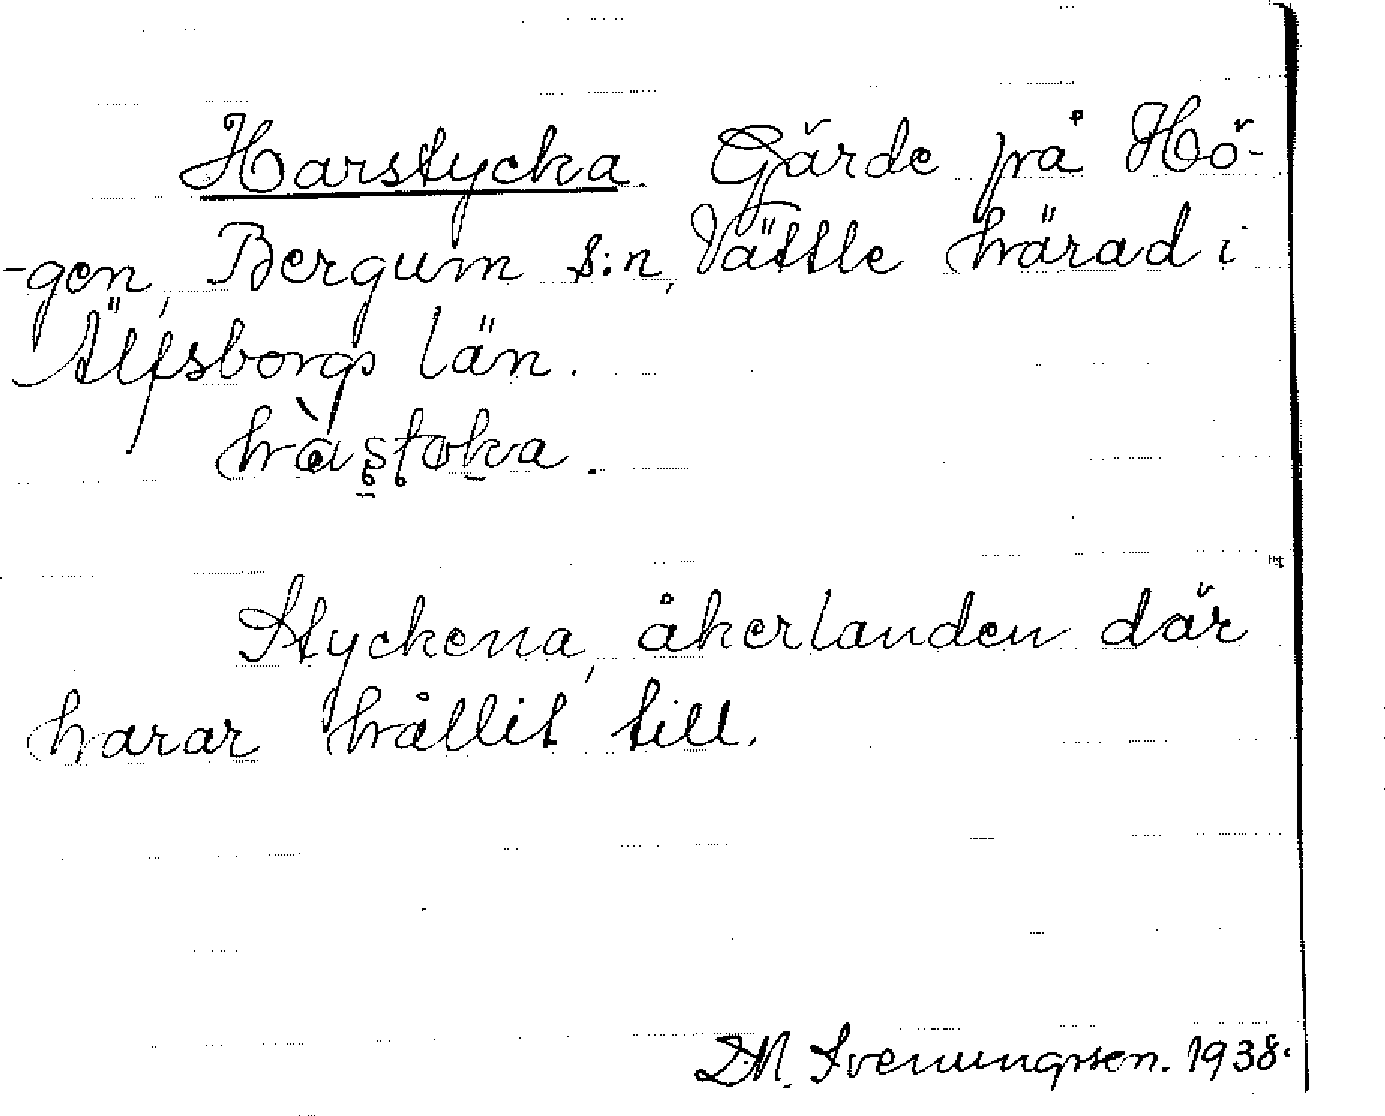 Harstycka. Gärde på Hö-
-gen, Bergum s:n, Vättle härad i
Älfsborgs län.
Styckena, åkerlanden där
harar hållit till.
D.M. Svenungsson. 1938.